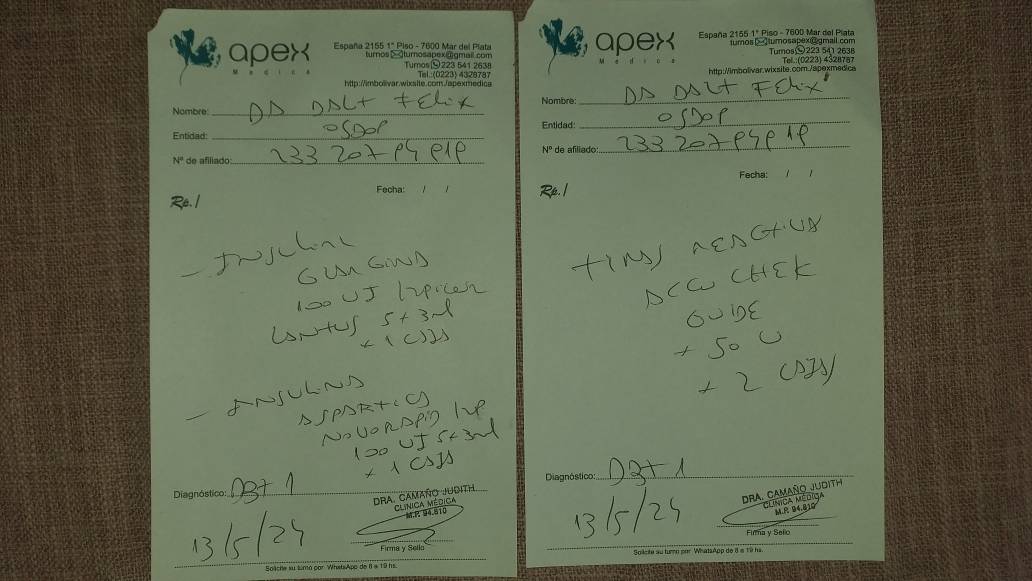 apex
Medica
España 2155 1° Piso - 7600 Mar del Plata
turnos turnosapex@gmail.com
Turnos 223 541 2638
Tel.:(0223) 4328787
http://imbolivar.wixsite.com./apexmedica
Nombre: DA DALT FELIX
Entidad: OSDOP
Nº de afiliado: 233 207
Fecha: / /
Rp./
- INSULINA
GLARGINA
100 UI lapicera
LANTUS 5x3ml
x 1 CAJA
- INSULINA
ASPARTICA
NOVORAPID
100 UI 5x3ml
x 1 CAJA
Diagnóstico: DBT 1
13/5/24
DRA. CAMAÑO JUDITH
CLINICA MÉDICA
M.P. 94.810
Firma y Sello
Solicite su turno por WhatsApp de 8 a 19 hs.
apex
Medica
España 2155 1° Piso - 7600 Mar del Plata
turnos turnosapex@gmail.com
Turnos 223 541 2638
Tel.:(0223) 4328787
http://imbolivar.wixsite.com./apexmedica
Nombre: DA DALT FELIX
Entidad: OSDOP
Nº de afiliado: 233 207
Fecha: / /
Rp./
TIRAS REACTIVA
ACCU CHEK
GUIDE
x 50 U
x 2 CAJAS
Diagnóstico: DBT 1
13/5/24
DRA. CAMAÑO JUDITH
CLINICA MÉDICA
M.P. 94.810
Firma y Sello
Solicite su turno por WhatsApp de 8 a 19 hs.